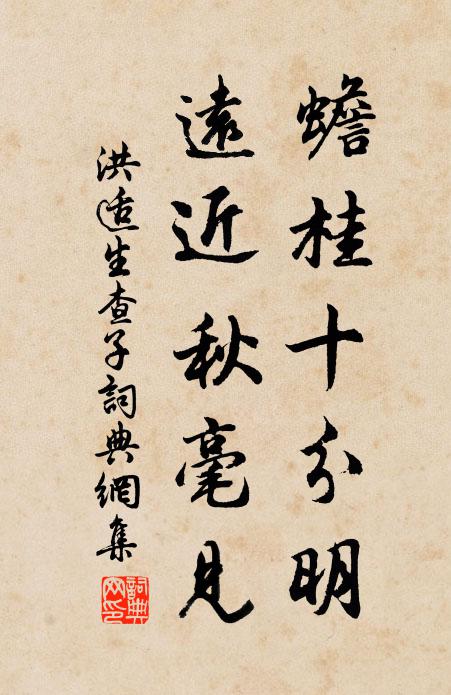 蟾桂十分明
遠近秋毫見
洪适生查子詞典網集
詞典網印